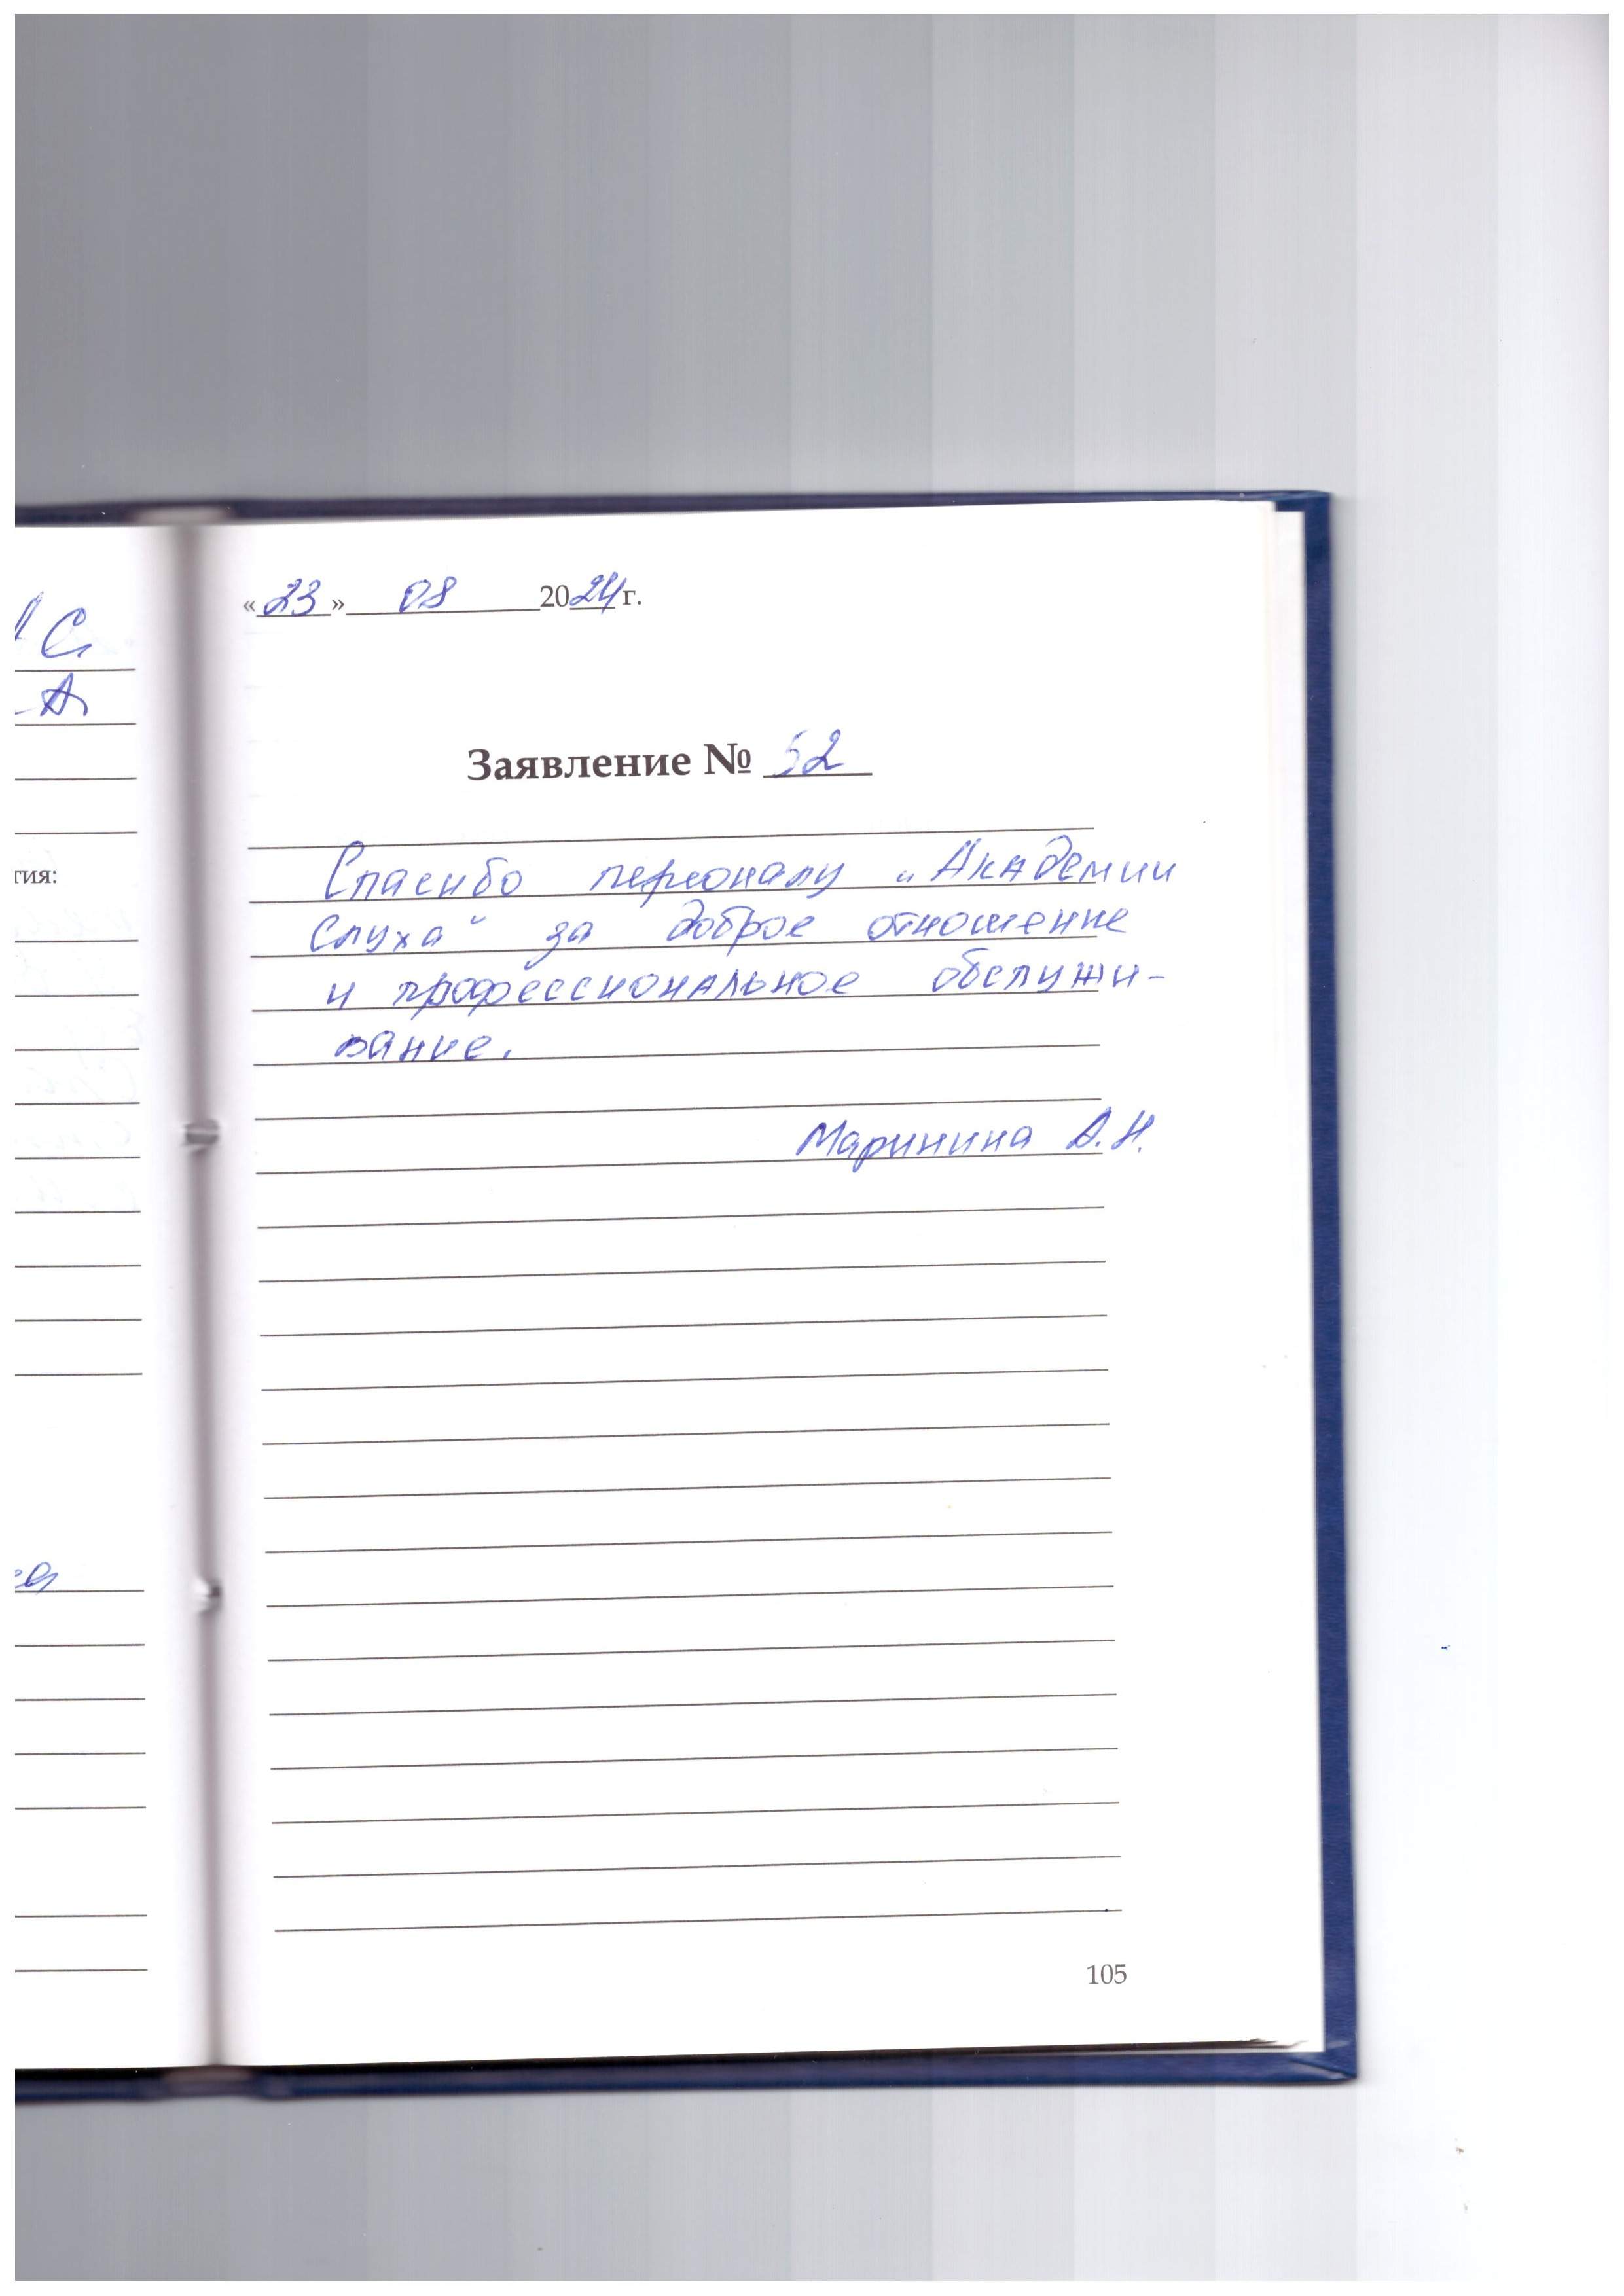 «23» 08 2024 г.
Заявление № 52
Спасибо персоналу „Академии
Слуха“ за доброе отношение
и профессиональное обслужи-
вание.
Маринина А.Н.
105
С.
А.
тия: